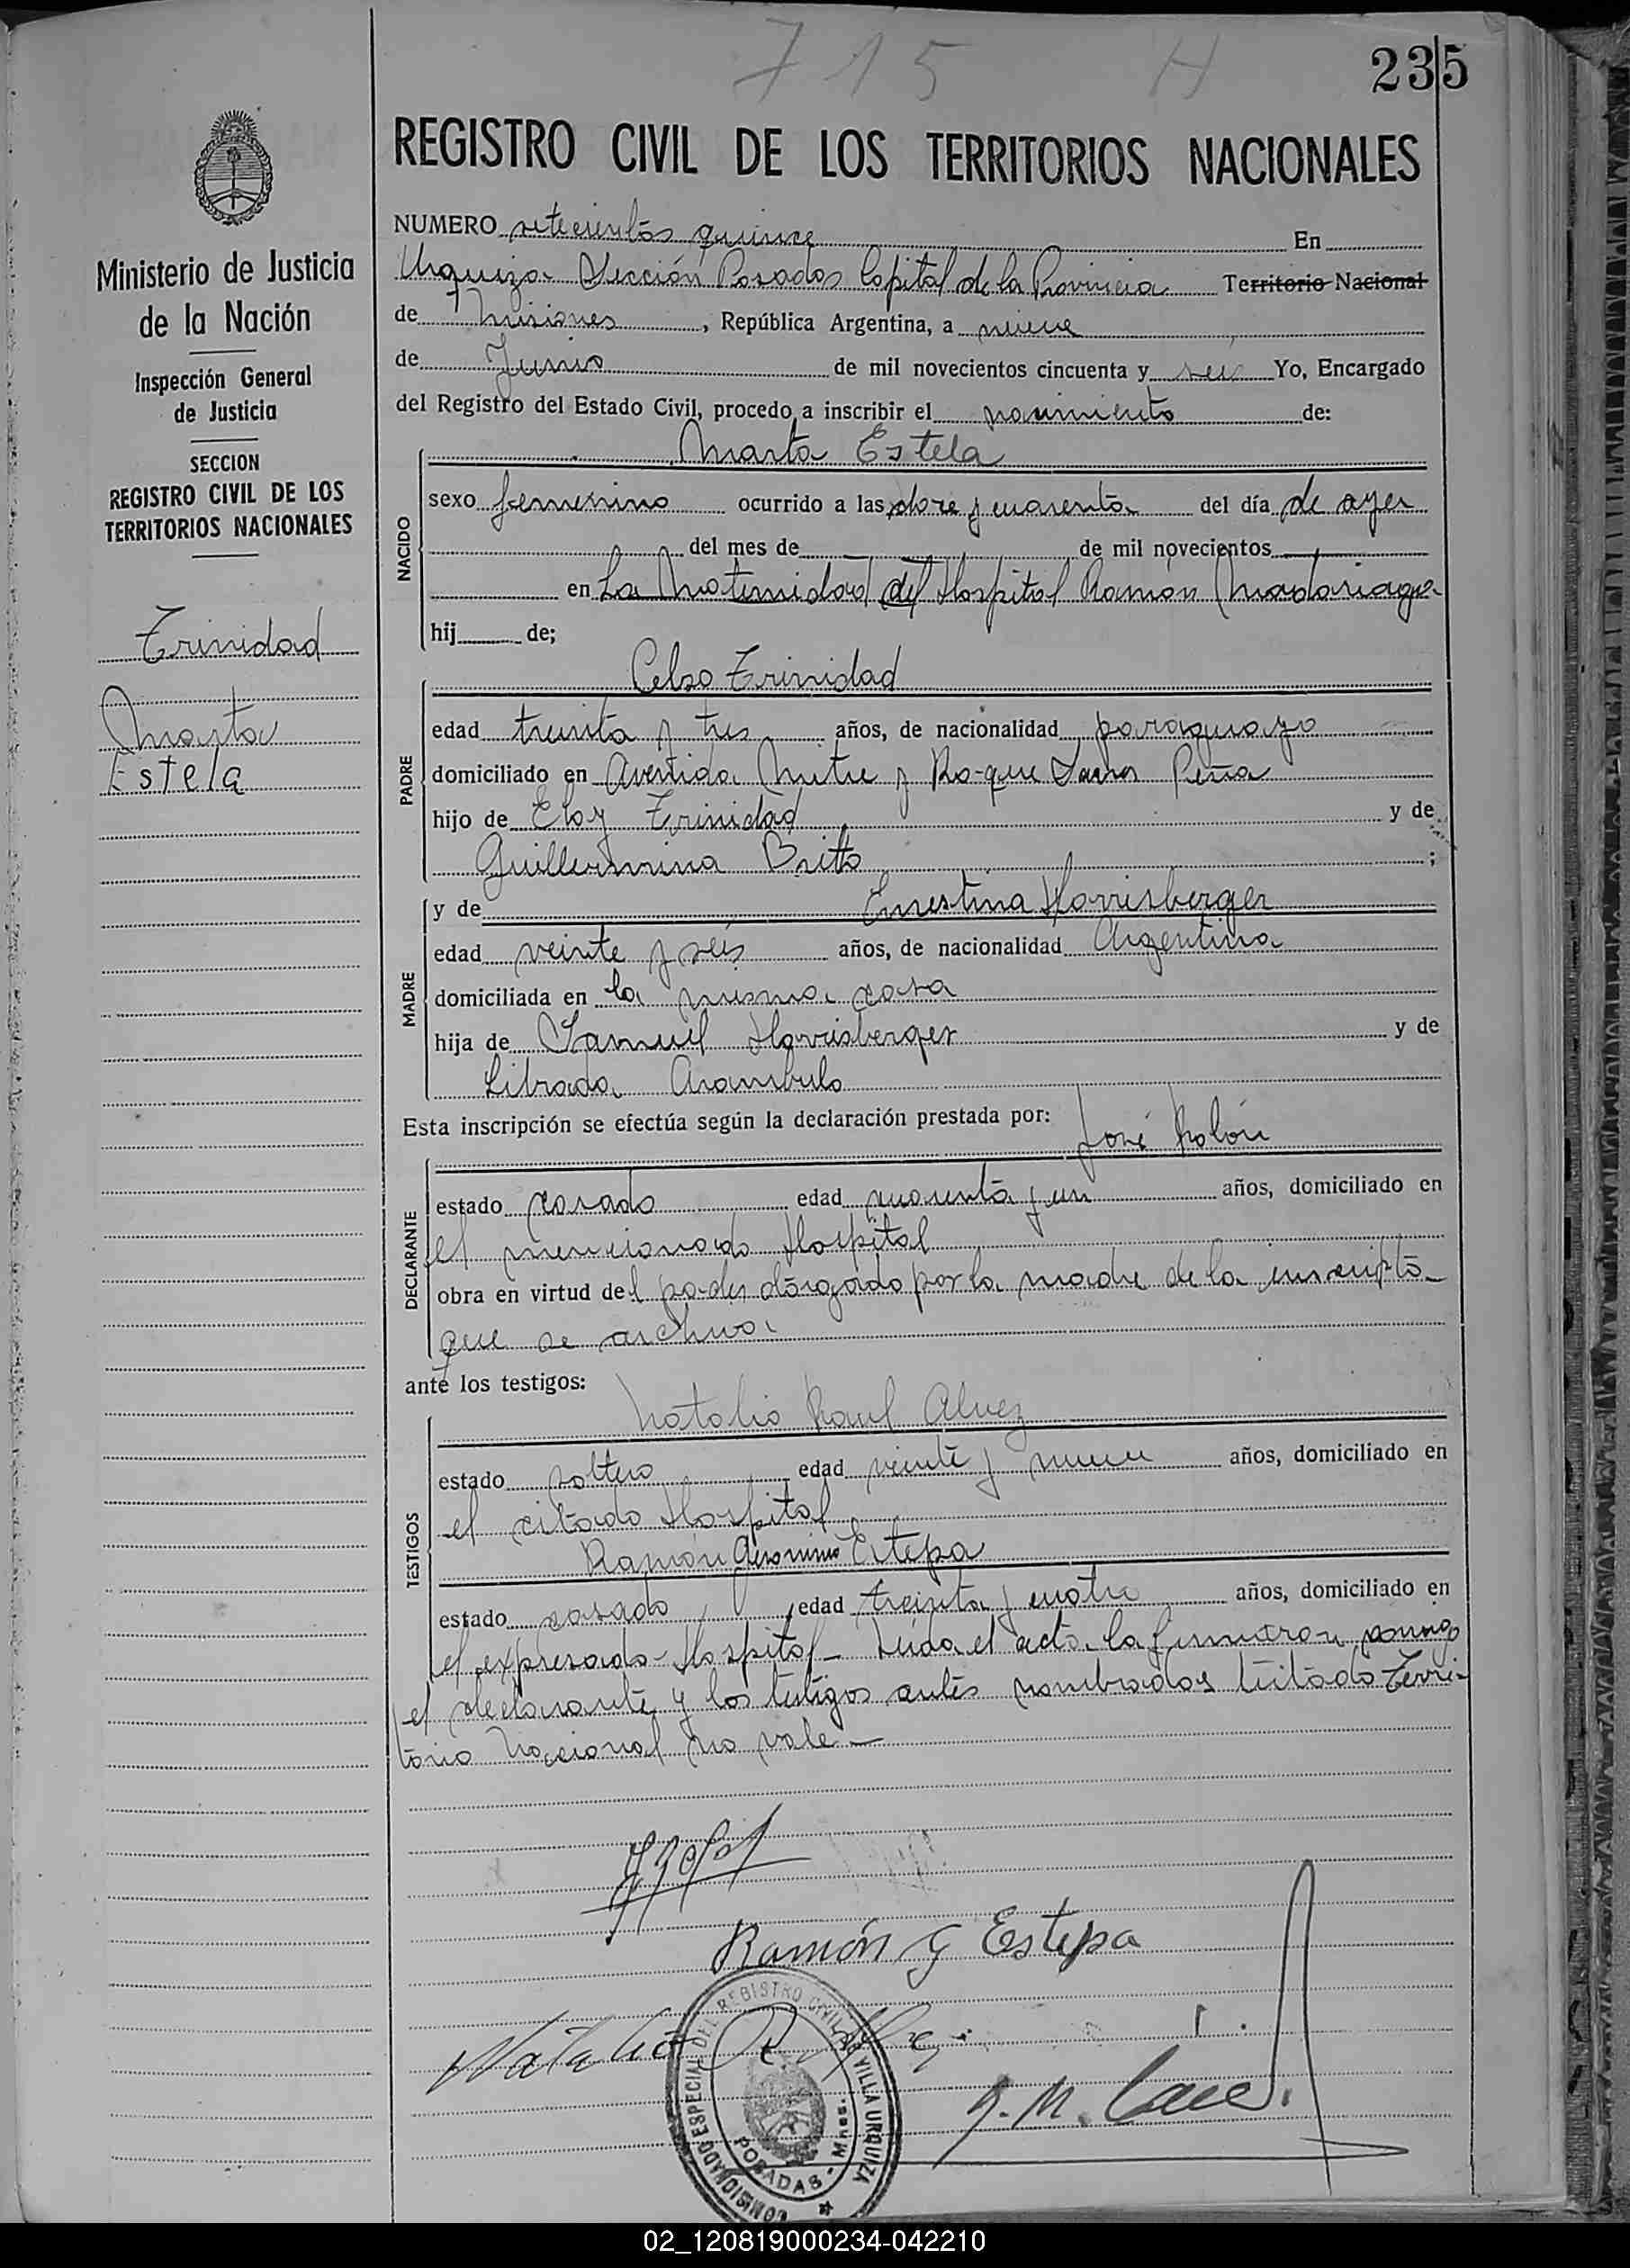 715 H
235
REGISTRO CIVIL DE LOS TERRITORIOS NACIONALES
Ministerio de Justicia
de la Nación
Inspección General
de Justicia
SECCION
REGISTRO CIVIL DE LOS
TERRITORIOS NACIONALES
Trinidad
Marta
Estela
NUMERO setecientos quince En
Urquiza Sección Posadas Capital de la Provincia Territorio Nacional
de Misiones, República Argentina, a nueve
de Junio de mil novecientos cincuenta y seis Yo, Encargado
del Registro del Estado Civil, procedo a inscribir el nacimiento de:
NACIDO
Marta Estela
sexo femenino ocurrido a las doce y cuarenta del día de ayer
del mes de de mil novecientos
en La Maternidad del Hospital Ramón Madariaga
hij de;
PADRE
Celso Trinidad
edad treinta y tres años, de nacionalidad paraguayo
domiciliado en Avenida Mitre y Roque Saenz Peña
hijo de Eloy Trinidad y de
Guillermina Britto ;
MADRE
y de Ernestina Horrisberger
edad veinte y seis años, de nacionalidad Argentina
domiciliada en la misma casa
hija de Samuel Horrisberger y de
Librada Arambulo
Esta inscripción se efectúa según la declaración prestada por:
DECLARANTE
José Rolón
estado casado edad cuarenta y un años, domiciliado en
el mencionado Hospital
obra en virtud del poder otorgado por la madre de la inscripta
que se archiva
ante los testigos:
TESTIGOS
Natalio Raul Alvez
estado soltero edad veinte y nueve años, domiciliado en
el citado Hospital
Ramón Geronimo Estepa
estado casado edad treinta y cuatro años, domiciliado en
el expresado Hospital_ Leida el acta la firmaron conmigo
el declarante y los testigos antes nombrados testado Terri-
torio Nacional no vale_
Ramón G Estepa
Natalio R.
COMISIONADO ESPECIAL DEL REGISTRO CIVIL VILLA URQUIZA
POSADAS - Mnes.
02_120819000234-042210